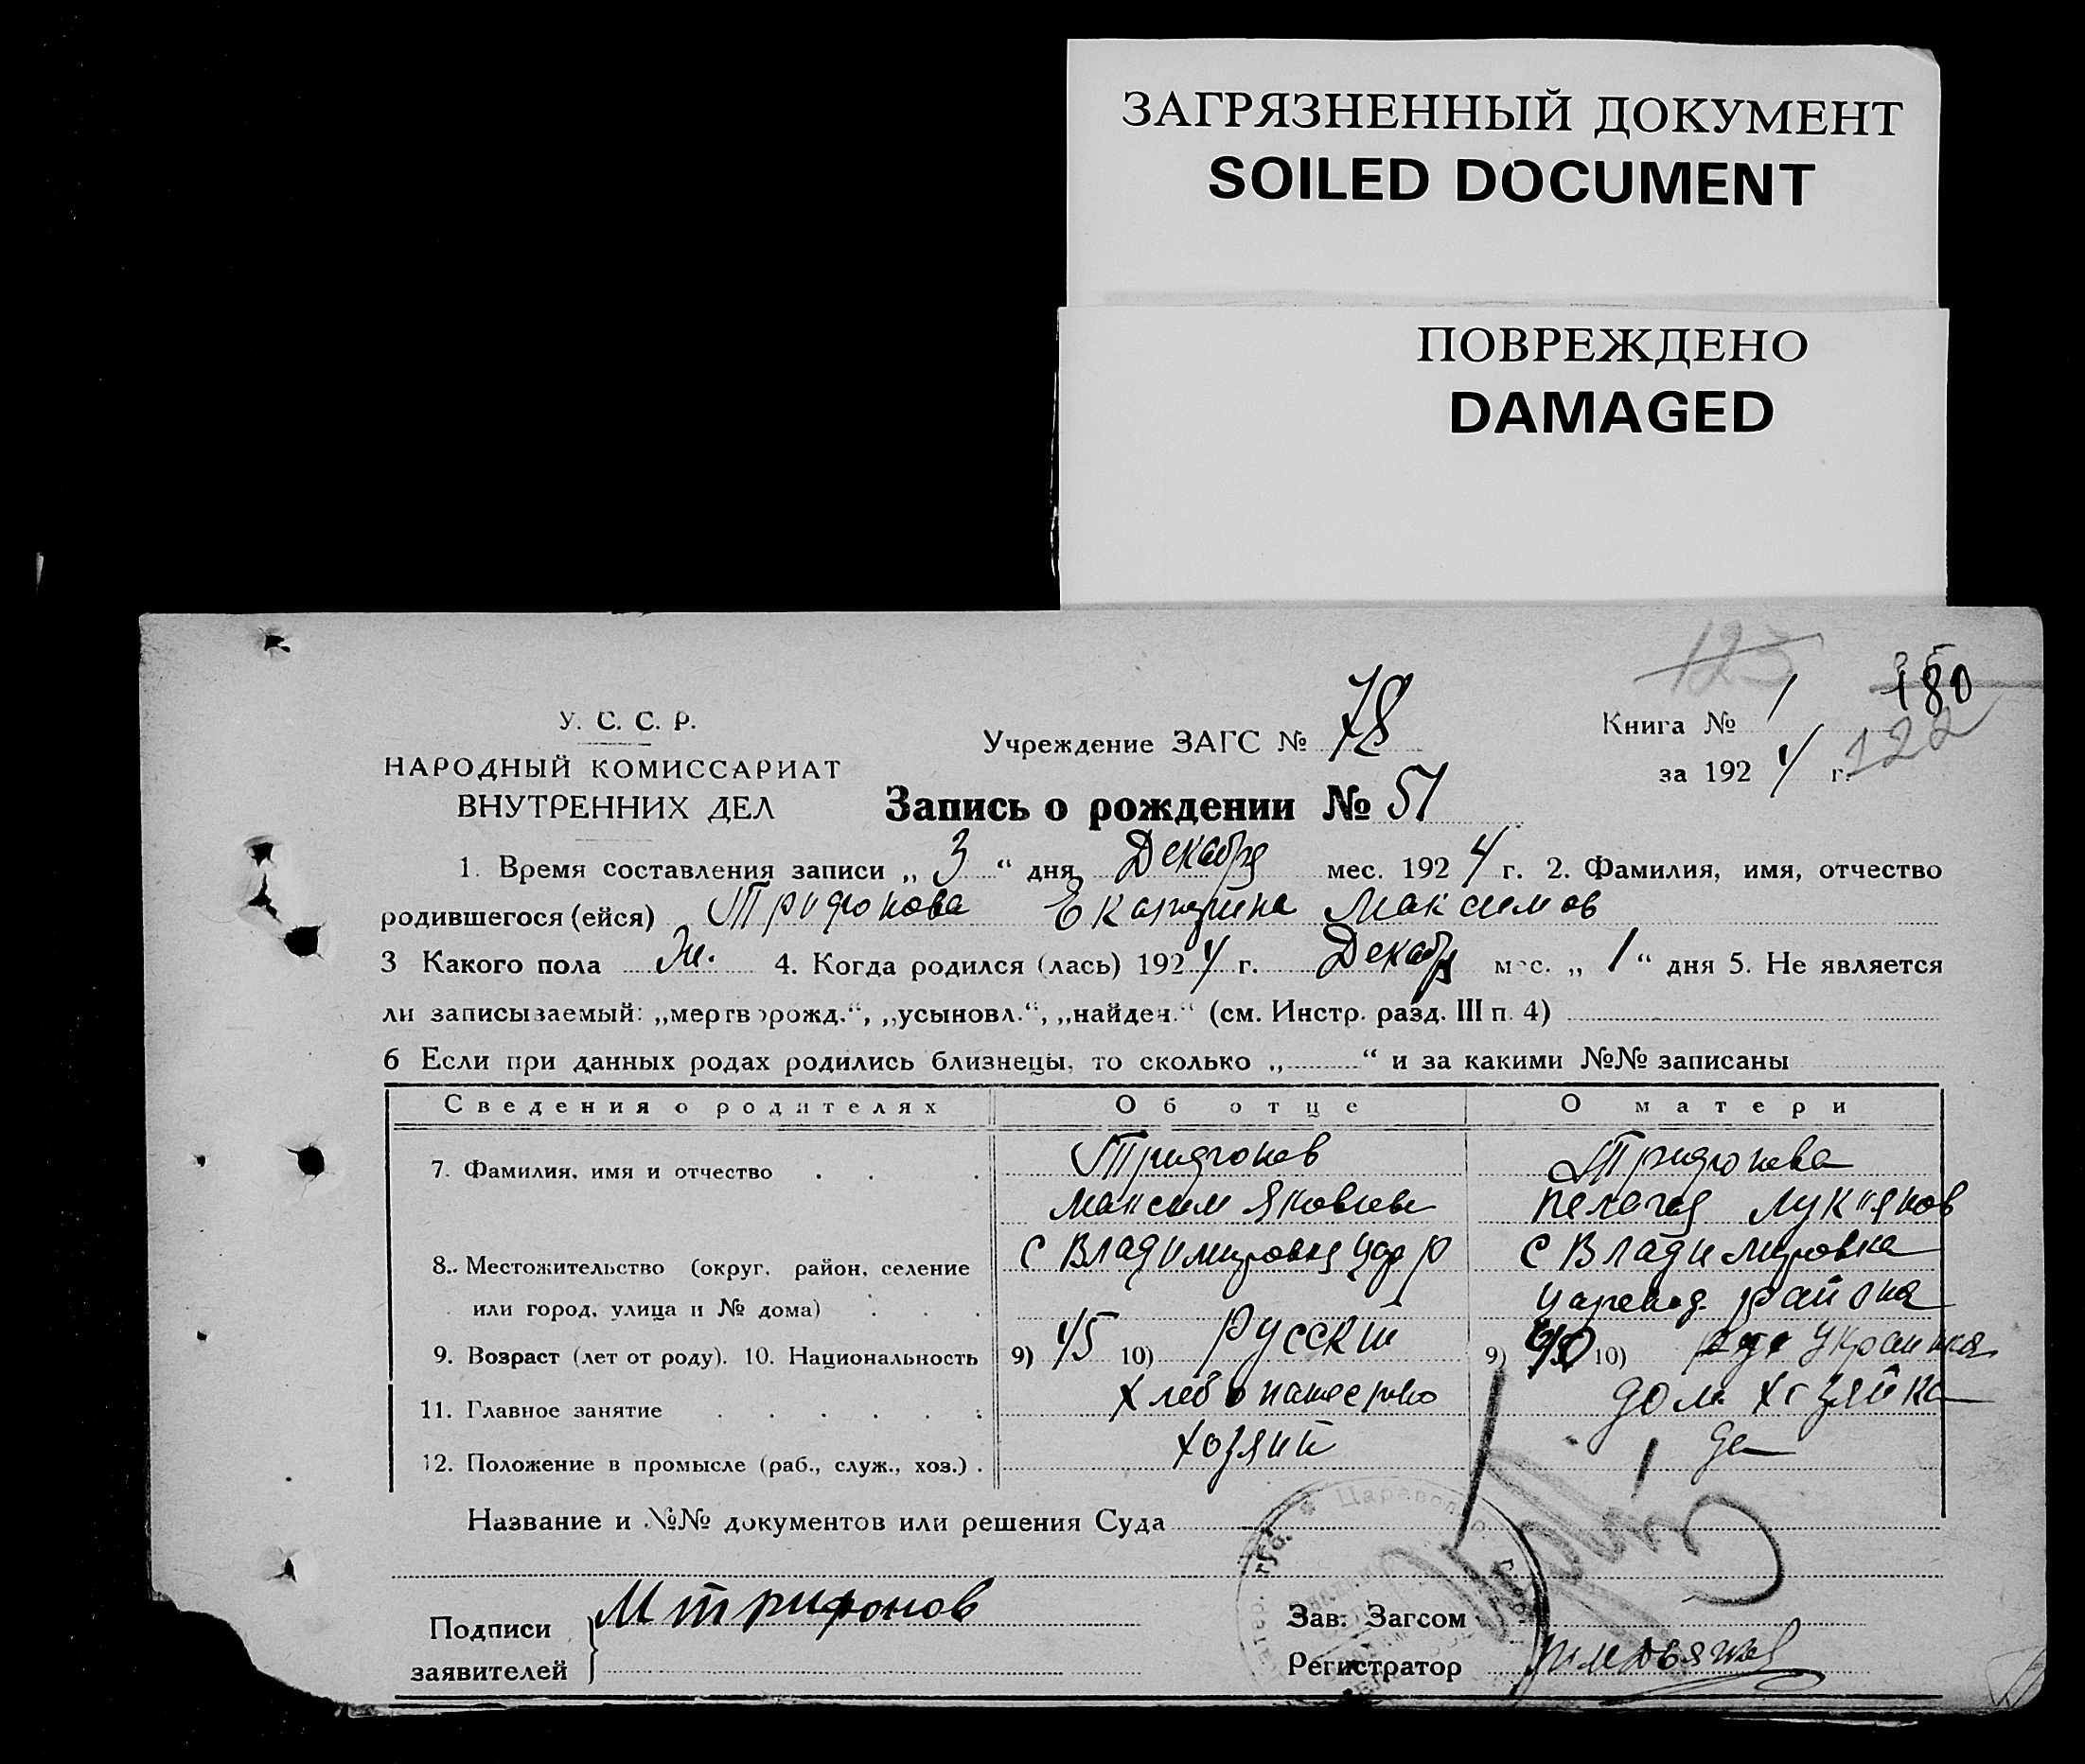 ЗАГРЯЗНЕННЫЙ ДОКУМЕНТ
SOILED DOCUMENT
ПОВРЕЖДЕНО
DAMAGED
123
180
У. С. С. Р.
НАРОДНЫЙ КОМИССАРИАТ
ВНУТРЕННИХ ДЕЛ
Учреждение ЗАГС № 78
Книга № 1
за 1924 г. 122
Запись о рождении № 51
1. Время составления записи „ 3 “ дня Декабря мес. 1924 г. 2. Фамилия, имя, отчество
родившегося (ейся) Трифонова Екатерина Максимов
3 Какого пола Ж. 4. Когда родился (лась) 1924 г. Декабр мес. „ 1 “ дня 5. Не является
ли записываемый: „мертворожд.“, „усыновл.“, „найден.“ (см. Инстр. разд. III п. 4)
6 Если при данных родах родились близнецы, то сколько „ “ и за какими №№ записаны
Сведения о родителях Об отце О матери
7. Фамилия, имя и отчество Трифонов Трифонова
Максим Яковлев Пелагея Лукъянов
8. Местожительство (округ, район, селение с Владимировка Цар р с Владимировка
или город, улица и № дома) Царевод. района
9. Возраст (лет от роду). 10. Национальность 9) 45 10) Русский 9) 40 10) Украинка
11. Главное занятие Хлебопашество дом. хозяйка
12. Положение в промысле (раб., служ., хоз.) хозяин
Название и №№ документов или решения Суда
Подписи
заявителей } М Трифонов
Зав. Загсом
Регистратор